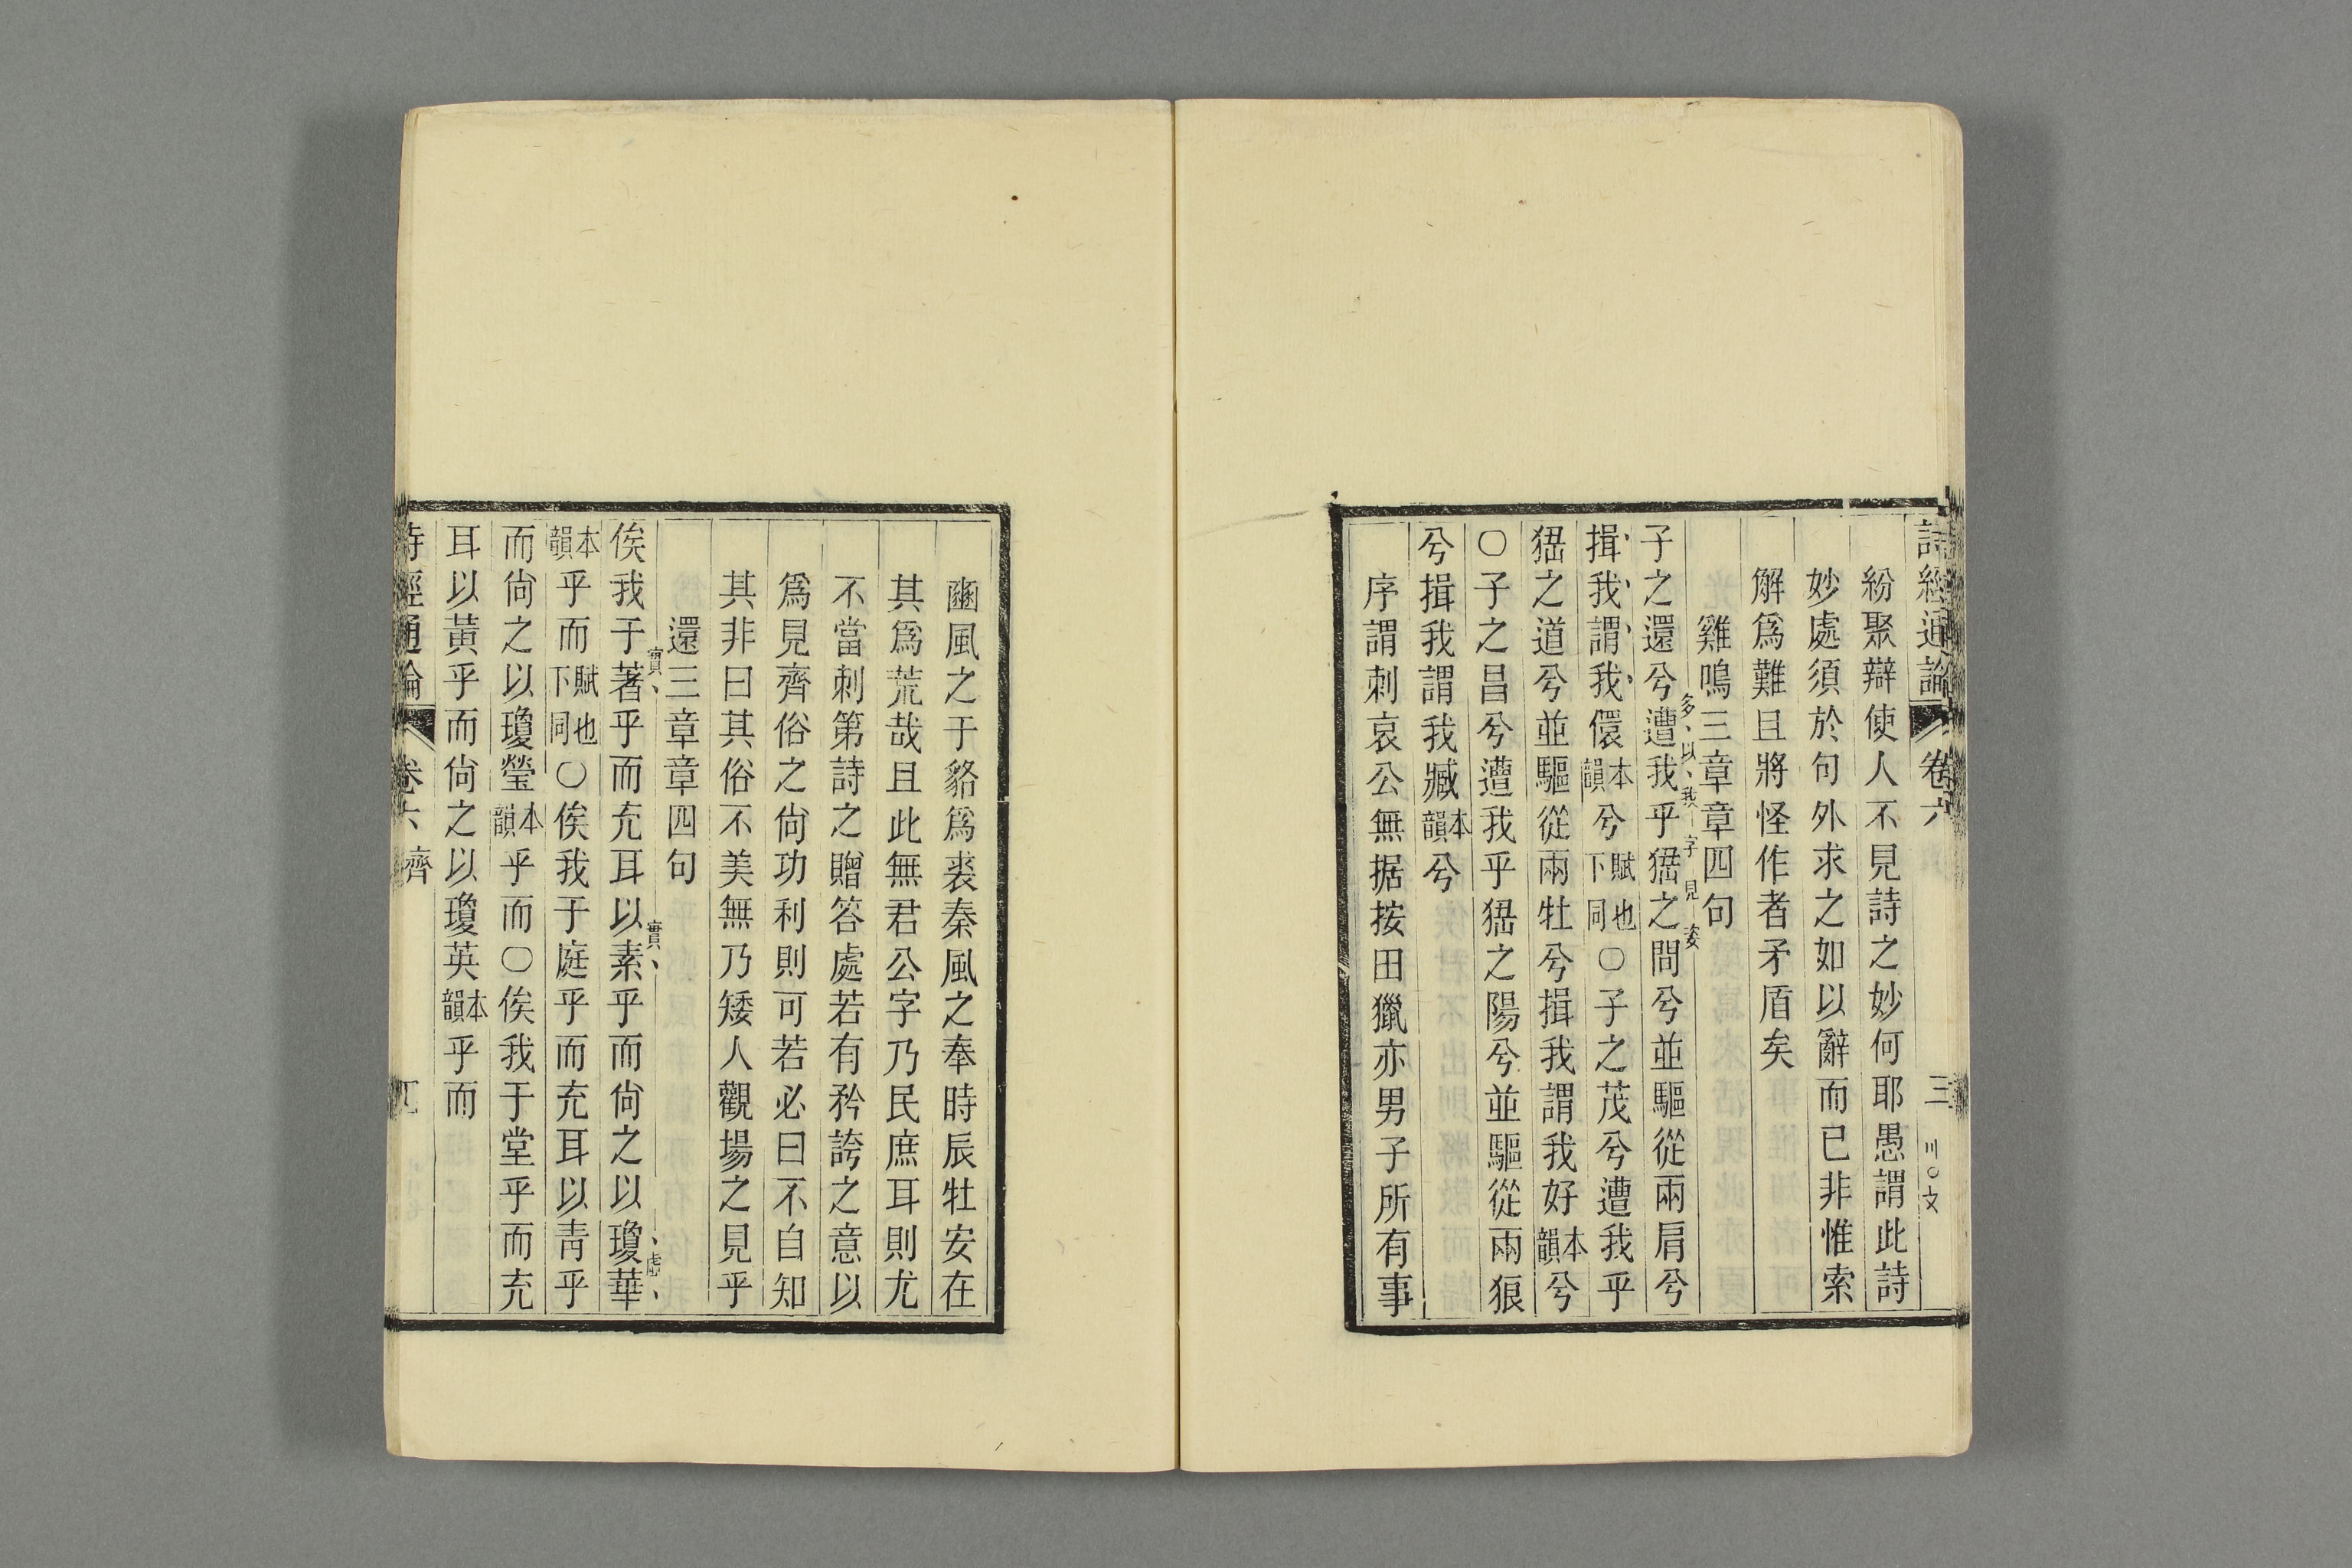 詩經通論 卷六 三
紛聚辯使人不見詩之妙何耶愚謂此詩
妙處須於句外求之如以辭而已非惟索
解爲難且將怪作者矛盾矣
雞鳴三章章四句
多以我字見姿
子之還兮遭我乎峱之間兮並驅從兩肩兮
揖我謂我儇本韻兮賦也下同○子之茂兮遭我乎
峱之道兮並驅從兩牡兮揖我謂我好本韻兮
○子之昌兮遭我乎峱之陽兮並驅從兩狼
兮揖我謂我臧本韻兮
序謂刺哀公無据按田獵亦男子所有事
豳風之于貉爲裘秦風之奉時辰牡安在
其爲荒哉且此無君公字乃民庶耳則尤
不當刺第詩之贈答處若有矜誇之意以
爲見齊俗之尙功利則可若必曰不自知
其非曰其俗不美無乃矮人觀場之見乎
還三章章四句
實 實 虛
俟我于著乎而充耳以素乎而尙之以瓊華
本韻乎而賦也下同○俟我于庭乎而充耳以青乎
而尙之以瓊瑩本韻乎而○俟我于堂乎而充
耳以黃乎而尙之以瓊英本韻乎而
詩經通論 卷六 齊